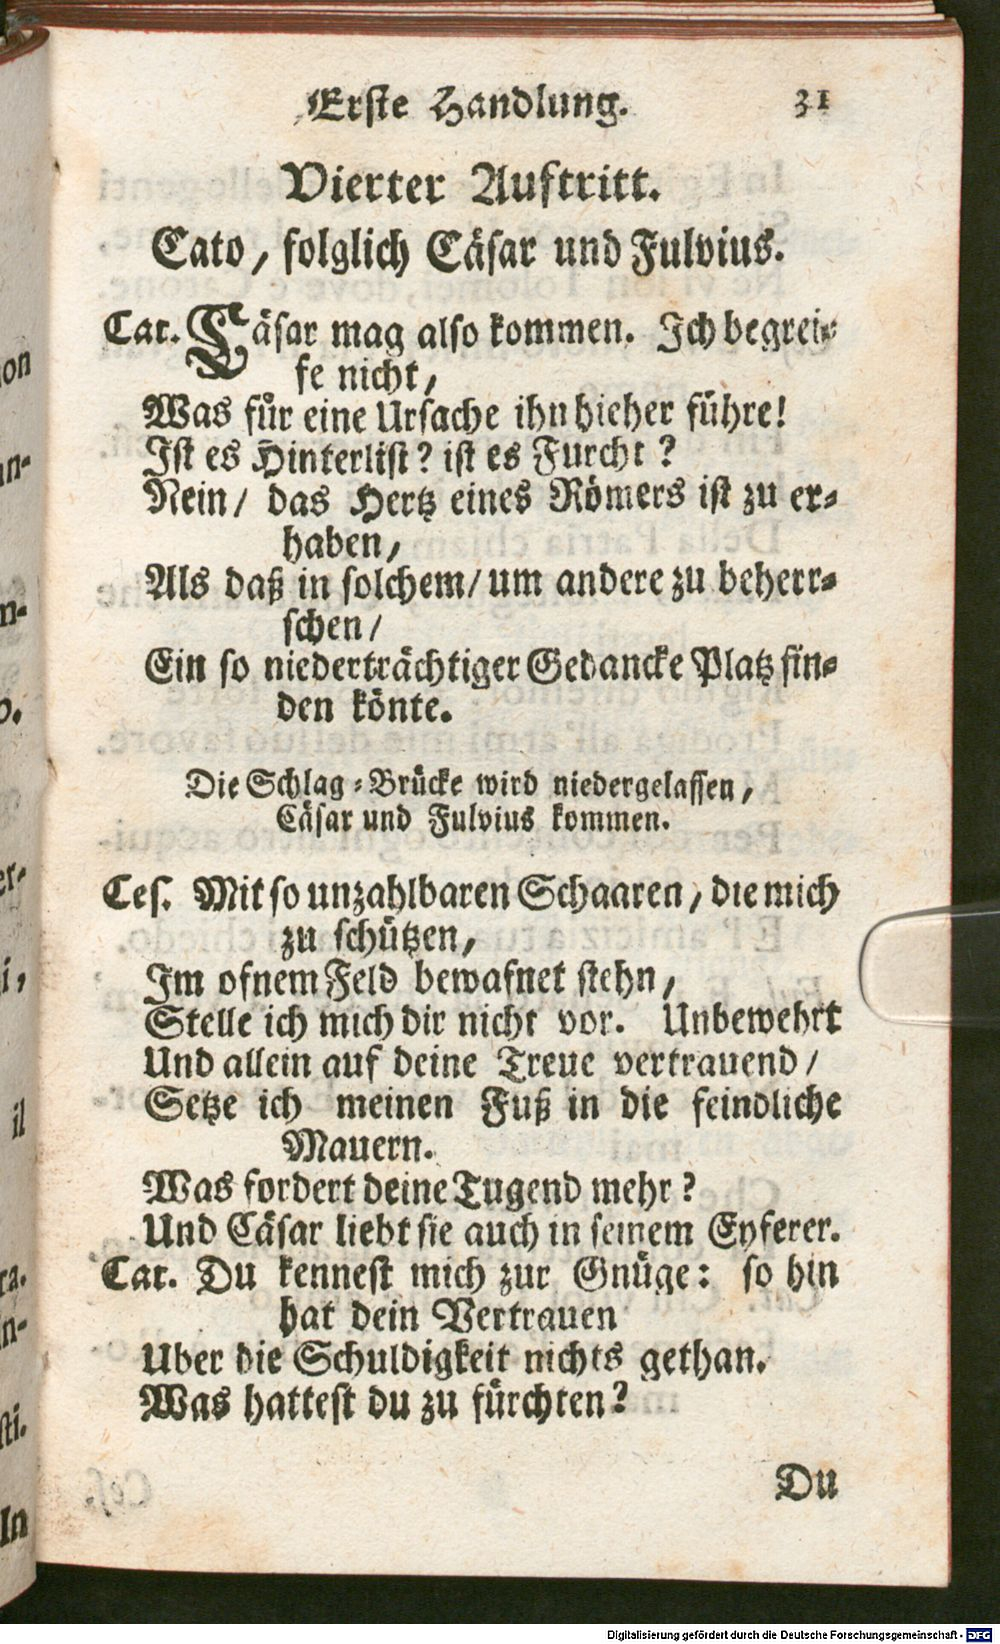 Erste Handlung. 31
Vierter Auftritt.
Cato, folglich Cäsar und Fulvius.
Cat. Cäsar mag also kommen. Ich begrei-
fe nicht,
Was für eine Ursache ihn hieher führe!
Ist es Hinterlist? ist es Furcht?
Nein/ das Hertz eines Römers ist zu er-
haben,
Als daß in solchem/ um andere zu beherr-
schen/
Ein so niederträchtiger Gedancke Platz fin-
den könte.
Die Schlag-Brücke wird niedergelassen,
Cäsar und Fulvius kommen.
Ces. Mit so unzahlbaren Schaaren, die mich
zu schützen,
Im ofnem Feld bewafnet stehn,
Stelle ich mich dir nicht vor. Unbewehrt
Und allein auf deine Treue vertrauend/
Setze ich meinen Fuß in die feindliche
Mauern.
Was fordert deine Tugend mehr?
Und Cäsar liebt sie auch in seinem Eyferer.
Cat. Du kennest mich zur Gnüge: so hin
hat dein Vertrauen
Uber die Schuldigkeit nichts gethan.
Was hattest du zu fürchten?
Du
Digitalisierung gefördert durch die Deutsche Forschungsgemeinschaft - DFG